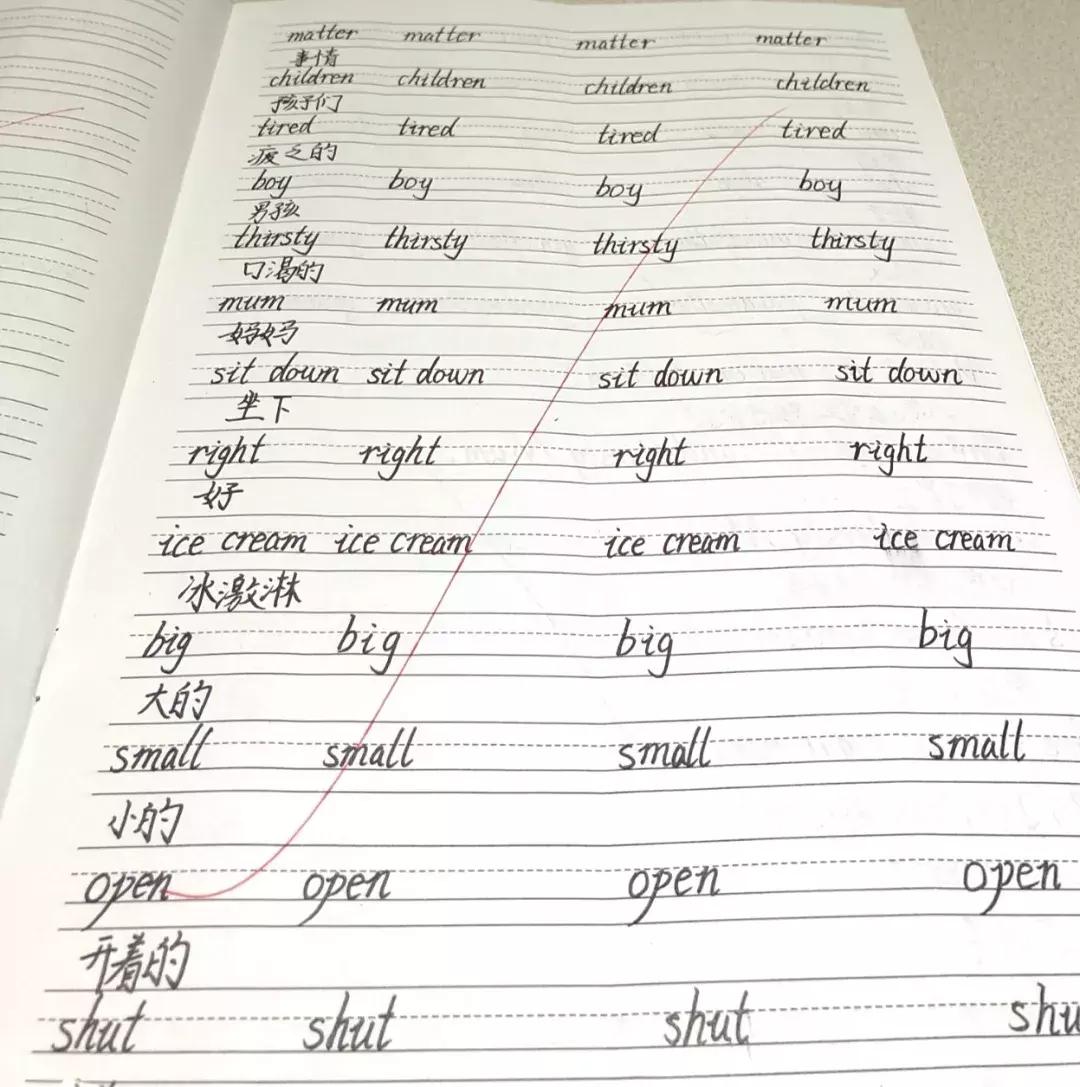 matter matter matter matter
事情
children children children children
孩子们
tired tired tired tired
疲乏的
boy boy boy boy
男孩
thirsty thirsty thirsty thirsty
口渴的
mum mum mum mum
妈妈
sit down sit down sit down sit down
坐下
right right right right
好
ice cream ice cream ice cream ice cream
冰激淋
big big big big
大的
small small small small
小的
open open open open
开着的
shut shut shut shu